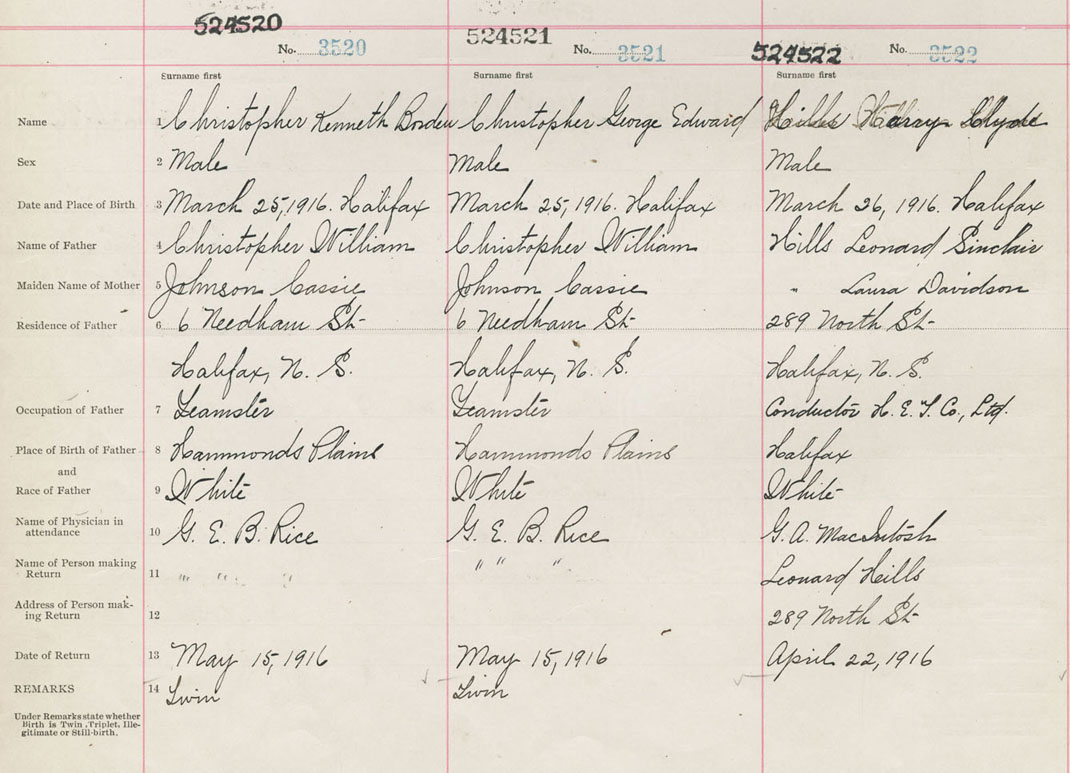 524520
No. 3520
524521
No. 3521
524522
No. 3522
Surname first
Surname first
Surname first
Name 1 Christopher Kenneth Borden Christopher George Edward Hills Clyde
Sex 2 Male Male Male
Date and Place of Birth 3 March 25, 1916. Halifax March 25, 1916. Halifax March 26, 1916. Halifax
Name of Father 4 Christopher William Christopher William Hills Leonard Sinclair
Maiden Name of Mother 5 Johnson Cassie Johnson Cassie " Laura Davidson
Residence of Father 6 6 Needham St. 6 Needham St. 289 North St.
Halifax, N. S. Halifax, N. S. Halifax, N. S.
Occupation of Father 7 Teamster Teamster Conductor H. E. T. Co., Ltd.
Place of Birth of Father 8 Hammonds Plains Hammonds Plains Halifax
and
Race of Father 9 White White White
Name of Physician in
attendance 10 G. E. B. Rice G. E. B. Rice G. A. MacIntosh
Name of Person making
Return 11 " " " " " " Leonard Hills
Address of Person mak-
ing Return 12 289 North St.
Date of Return 13 May 15, 1916 May 15, 1916 April 22, 1916
REMARKS 14 Twin Twin
Under Remarks state whether
Birth is Twin, Triplet, Ille-
gitimate or Still-birth.